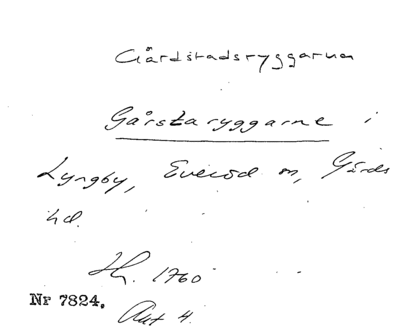 Gårdstadsryggarna
Gårstaryggarne i
Lyngby, Everöd m, Gärds
hd.
Hg. 1760
Nr 7824.
Akt 4.